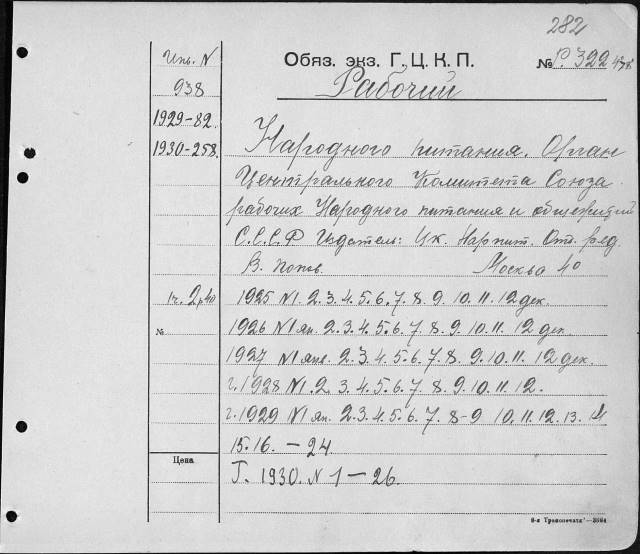 282
Обяз. экз. Г. Ц. К. П. № Р. 322
Инв. N
Рабочий
938
1929-82.
1930-258.
Народного питания. Орган
Центрального Комитета Союза
рабочих Народного питания и общежитий
С.С.С.Р Издатель: Цк. Нарпит. Отв. ред.
В. Попов. Москва 40
1925 N1. 2. 3. 4. 5. 6. 7. 8. 9. 10. 11. 12 дек.
№ 1926 N1 ян. 2. 3. 4. 5. 6. 7. 8. 9. 10. 11. 12 дек.
1927 N1 янв. 2. 3. 4. 5. 6. 7. 8. 9. 10. 11. 12 дек.
г. 1928 N1. 2. 3. 4. 5. 6. 7. 8. 9. 10. 11. 12.
г. 1929 N1 ян. 2. 3. 4. 5. 6. 7. 8-9 10. 11. 12. 13. 14
15. 16. — 24
Цена
Г. 1930. N 1 — 26.